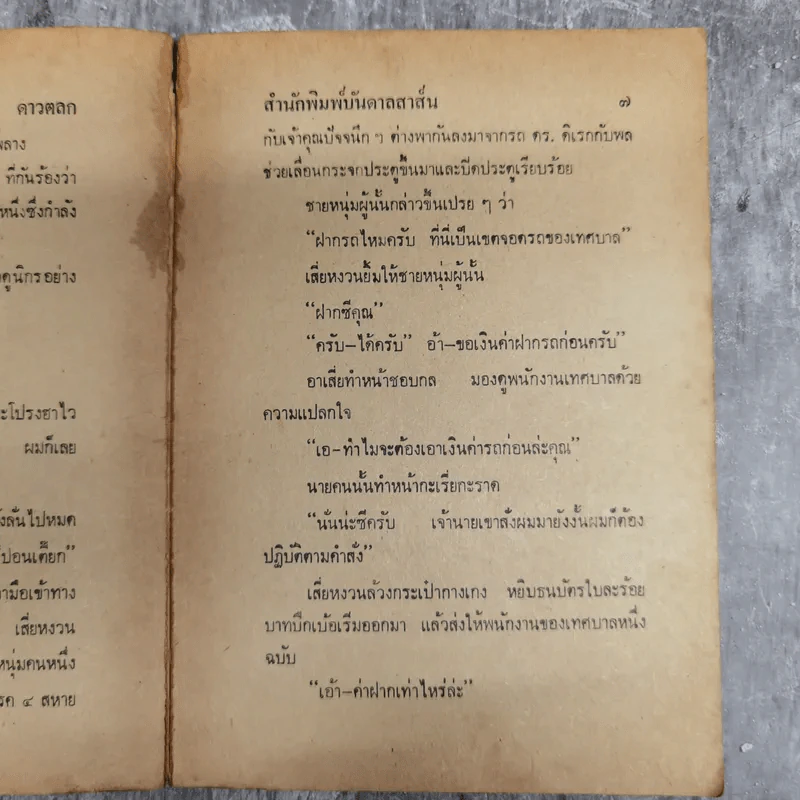 ดาวตลก
พลาง
ที่กันร้องว่า
หนึ่งซึ่งกำลัง
ดูนิกรอย่าง
ะโปรงฮาไว
ผมก็เลย
ังลั่นไปหมด
ปอนเตี๊ยก”
ามือเข้าทาง
เสี่ยหงวน
หนุ่มคนหนึ่ง
รค ๔ สหาย
สำนักพิมพ์บันดาลสาส์น ๗
กับเจ้าคุณปัจจนึก ฯ ต่างพากันลงมาจากรถ ดร. ดิเรกกับพล
ช่วยเลื่อนกระจกประตูขึ้นมาและปิดประตูเรียบร้อย
ชายหนุ่มผู้นั้นกล่าวขึ้นเปรย ๆ ว่า
“ฝากรถไหมครับ ที่นี่เป็นเขตจอดรถของเทศบาล”
เสี่ยหงวนยิ้มให้ชายหนุ่มผู้นั้น
“ฝากซีคุณ”
“ครับ—ได้ครับ” อ้า—ขอเงินค่าฝากรถก่อนครับ”
อาเสี่ยทำหน้าชอบกล มองดูพนักงานเทศบาลด้วย
ความแปลกใจ
“เอ-ทำไมจะต้องเอาเงินค่ารถก่อนล่ะคุณ”
นายคนนั้นทำหน้ากะเรี่ยกะราด
“นั่นน่ะซีครับ เจ้านายเขาสั่งผมมายังงั้นผมก็ต้อง
ปฏิบัติตามคำสั่ง”
เสี่ยหงวนล้วงกระเป๋ากางเกง หยิบธนบัตรใบละร้อย
บาทปึกเบ้อเริ่มออกมา แล้วส่งให้พนักงานของเทศบาลหนึ่ง
ฉบับ
“เอ้า—ค่าฝากเท่าไหร่ล่ะ”